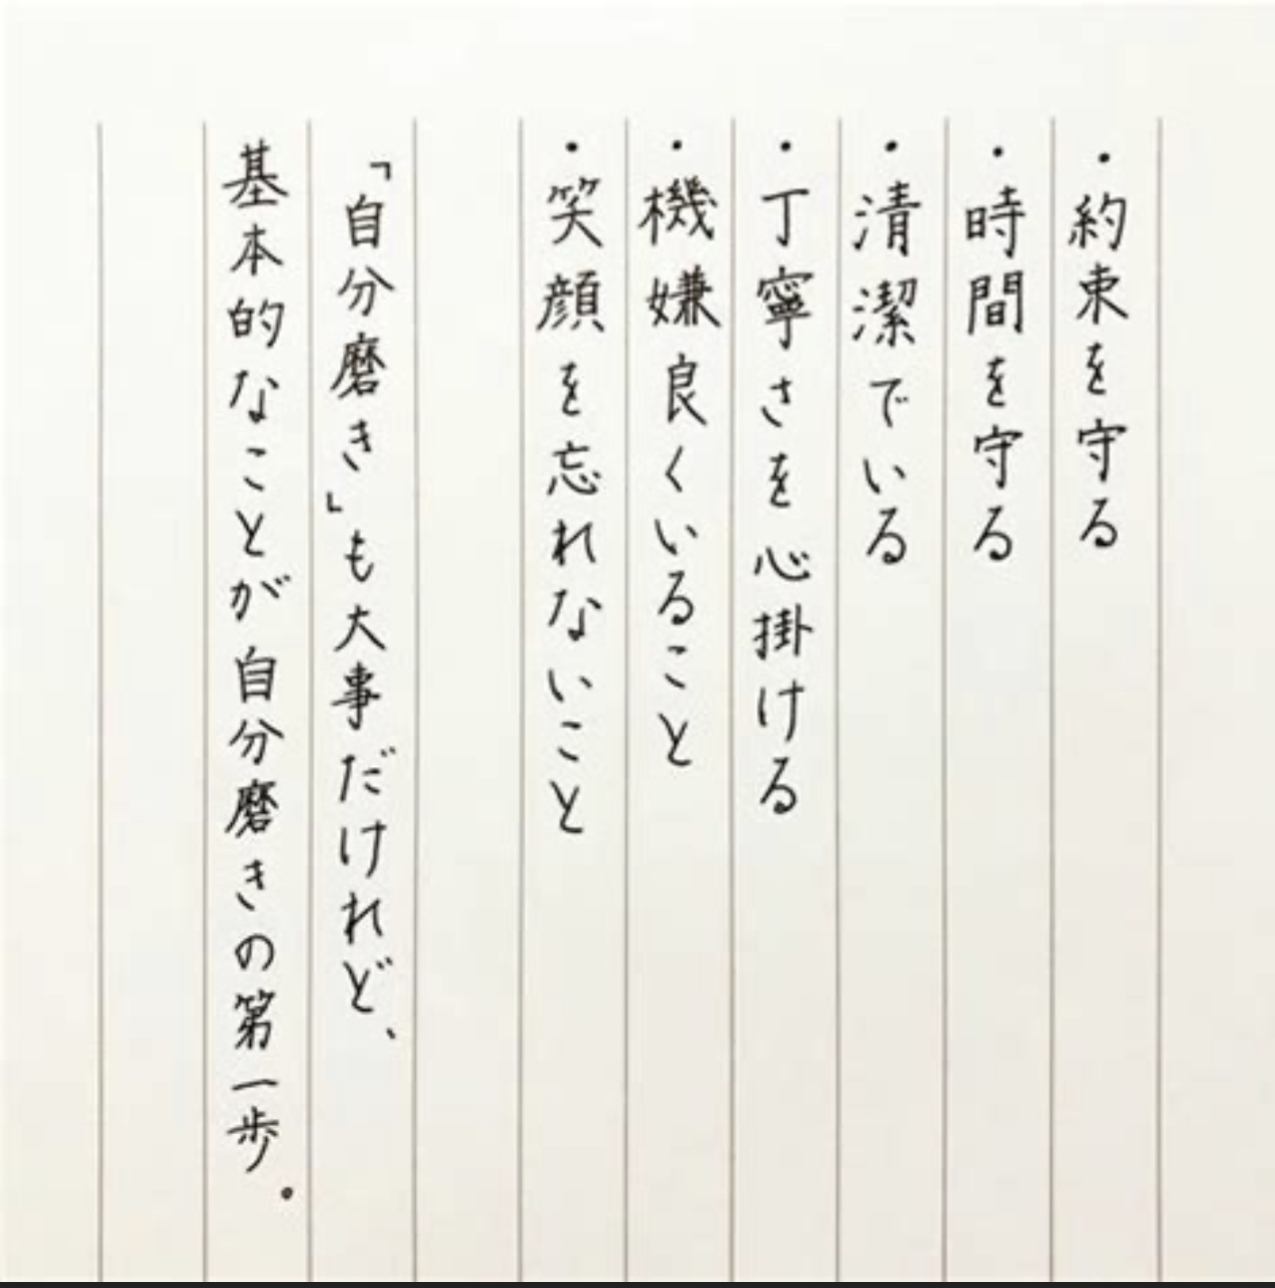 ・約束を守る
・時間を守る
・清潔でいる
・丁寧さを心掛ける
・機嫌良くいること
・笑顔を忘れないこと
「自分磨き」も大事だけれど、
基本的なことが自分磨きの第一歩。